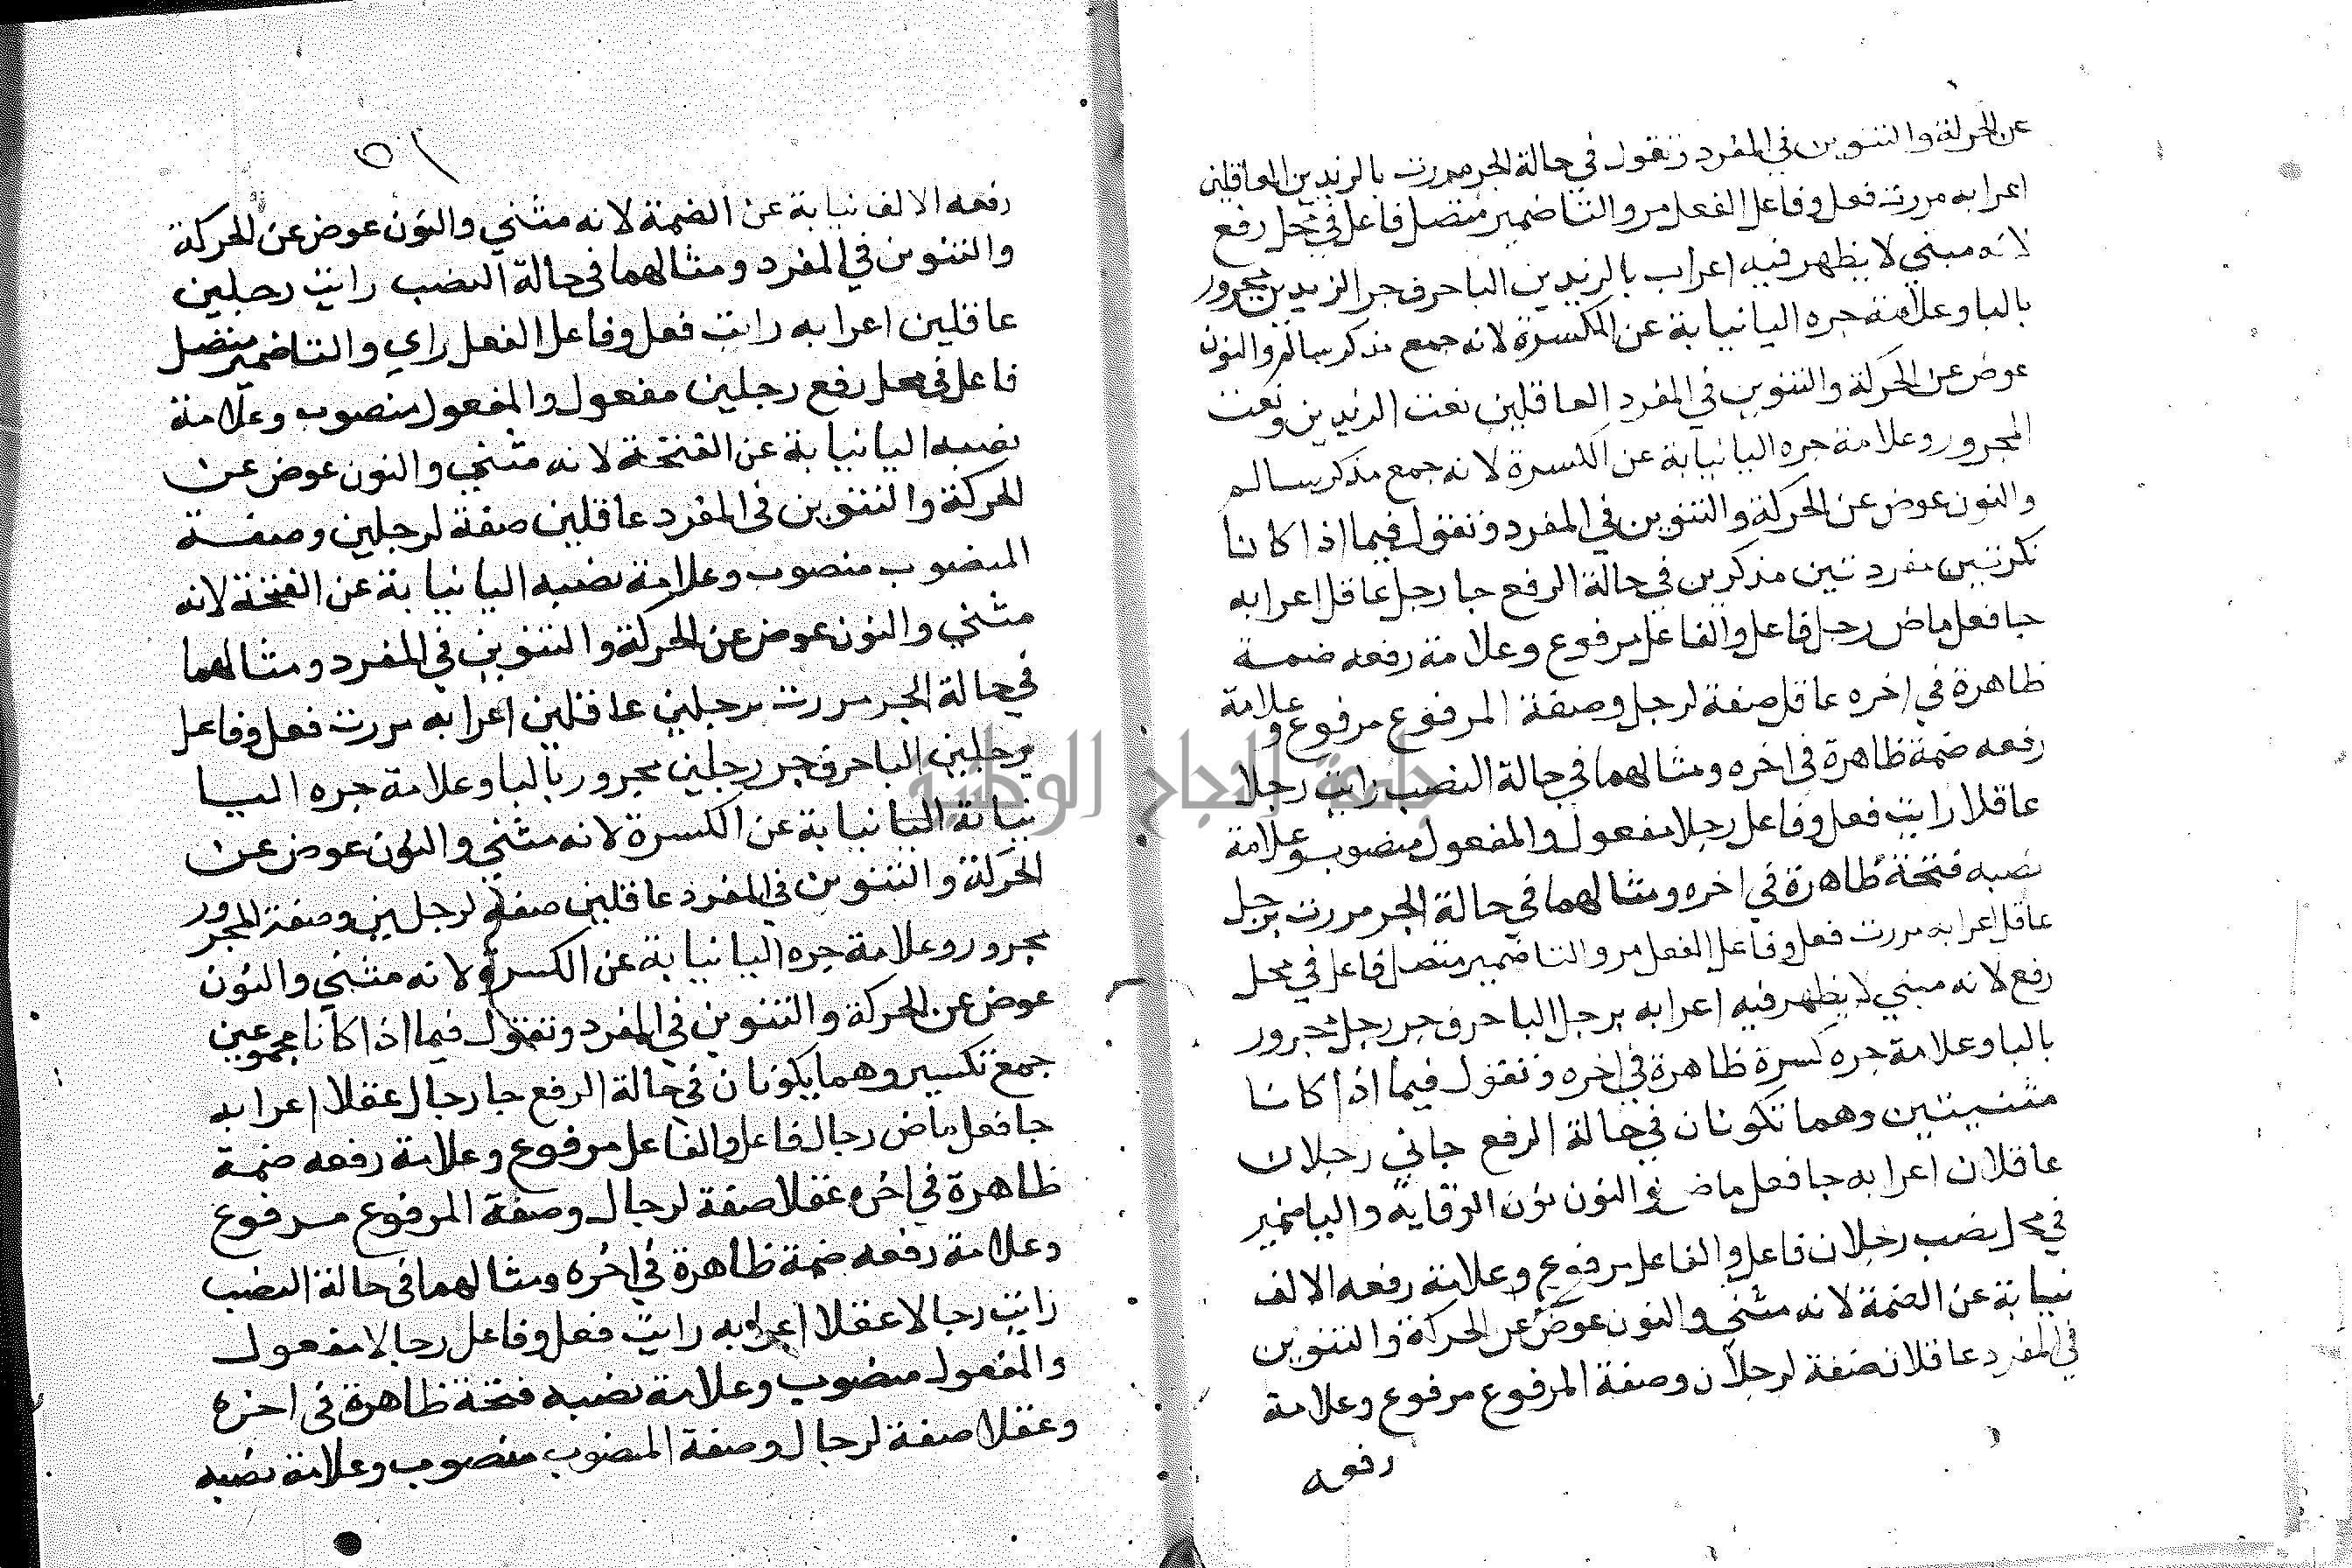 عن الحركة والتنوين في المفرد وتقول في حالة الجر مررت بالزيدين العاقلين
اعرابه مررت فعل وفاعل الفعل مر والتا ضمير متصل فاعل في محل رفع
لانه مبني لا يظهر فيه اعراب بالزيدين الباحرف جر الزيدين مجرور
بالبا وعلامة جره اليا نيابة عن الكسرة لانه جمع مذكر سالم والنون
عوض عن الحركة والتنوين في المفرد العاقلين نعت الزيدين ونعت
المجرور وعلامة جره اليا نيابة عن الكسرة لانه جمع مذكر سالم
والنون عوض عن الحركة والتنوين في المفرد وتقول فيما اذا كانا
نكرتين مفردتين مذكرين في حالة الرفع جا رجل عاقل اعرابه
جا فعل ماض رجل فاعل والفاعل مرفوع وعلامة رفعه ضمة
ظاهرة في اخره عاقل صفة لرجل وصفة المرفوع مرفوع وعلامة
رفعه ضمة ظاهرة في اخره ومثالهما في حالة النصب رايت رجلا
عاقلا رايت فعل وفاعل رجلا مفعول والمفعول منصوب وعلامة
نصبه فتحة ظاهرة في اخره ومثالهما في حالة الجر مررت برجل
عاقل اعرابه مررت فعل وفاعل الفعل مر والتا ضمير متصل فاعل في محل
رفع لانه مبني لا يظهر فيه اعرابه برجل الباحرف جر رجل مجرور
بالبا وعلامة جره كسرة ظاهرة في اخره وتقول فيما اذا كانا
مثنيتين وهما تكونان في حالة الرفع جاني رجلان
عاقلان اعرابه جا فعل ماض والنون نون الوقاية واليا ضمير
في محل نصب رجلان فاعل والفاعل مرفوع وعلامة رفعه الالف
نيابة عن الضمة لانه مثني والنون عوض عن الحركة والتنوين
في المفرد عاقلان صفة لرجلان وصفة المرفوع مرفوع وعلامة
رفعه
رفعه الالف نيابة عن الضمة لانه مثني والنون عوض عن الحركة
والتنوين في المفرد ومثالهما في حالة النصب رايت رجلين
عاقلين اعرابه رايت فعل وفاعل الفعل راي والتا ضمير متصل
فاعل في محل رفع رجلين مفعول والمفعول منصوب وعلامة
نصبه اليا نيابة عن الفتحة لانه مثني والنون عوض عن
الحركة والتنوين في المفرد عاقلين صفة لرجلين وصفة
المنصوب منصوب وعلامة نصبه اليا نيابة عن الفتحة لانه
مثني والنون عوض عن الحركة والتنوين في المفرد ومثالهما
في حالة الجر مررت برجلين عاقلين اعرابه مررت فعل وفاعل
برجلين الباحرف جر رجلين مجرور بالبا وعلامة جره اليا
نيابة اليا نيابة عن الكسرة لانه مثني والنون عوض عن
الحركة والتنوين في المفرد عاقلين صفة لرجلين وصفة المجرور
مجرور وعلامة جره اليا نيابة عن الكسرة لانه مثني والنون
عوض عن الحركة والتنوين في المفرد وتقول فيما اذا كانا مجموعين
جمع تكسير وهما يكونان في حالة الرفع جا رجال عقلا اعرابه
جا فعل ماض رجال فاعل والفاعل مرفوع وعلامة رفعه ضمة
ظاهرة في اخره عقلا صفة لرجال وصفة المرفوع مرفوع
وعلامة رفعه ضمة ظاهرة في اخره ومثالهما في حالة النصب
رايت رجالا عقلا اعرابه رايت فعل وفاعل رجالا مفعول
والمفعول منصوب وعلامة نصبه فتحة ظاهرة في اخره
وعقلا صفة لرجال وصفة المنصوب منصوب وعلامة نصبه
جامعة النجاح الوطنية